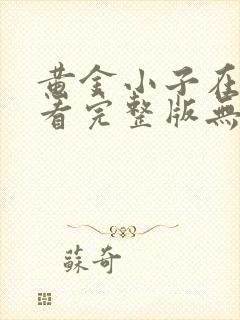 黄金小子在
看完整版無
蘇奇